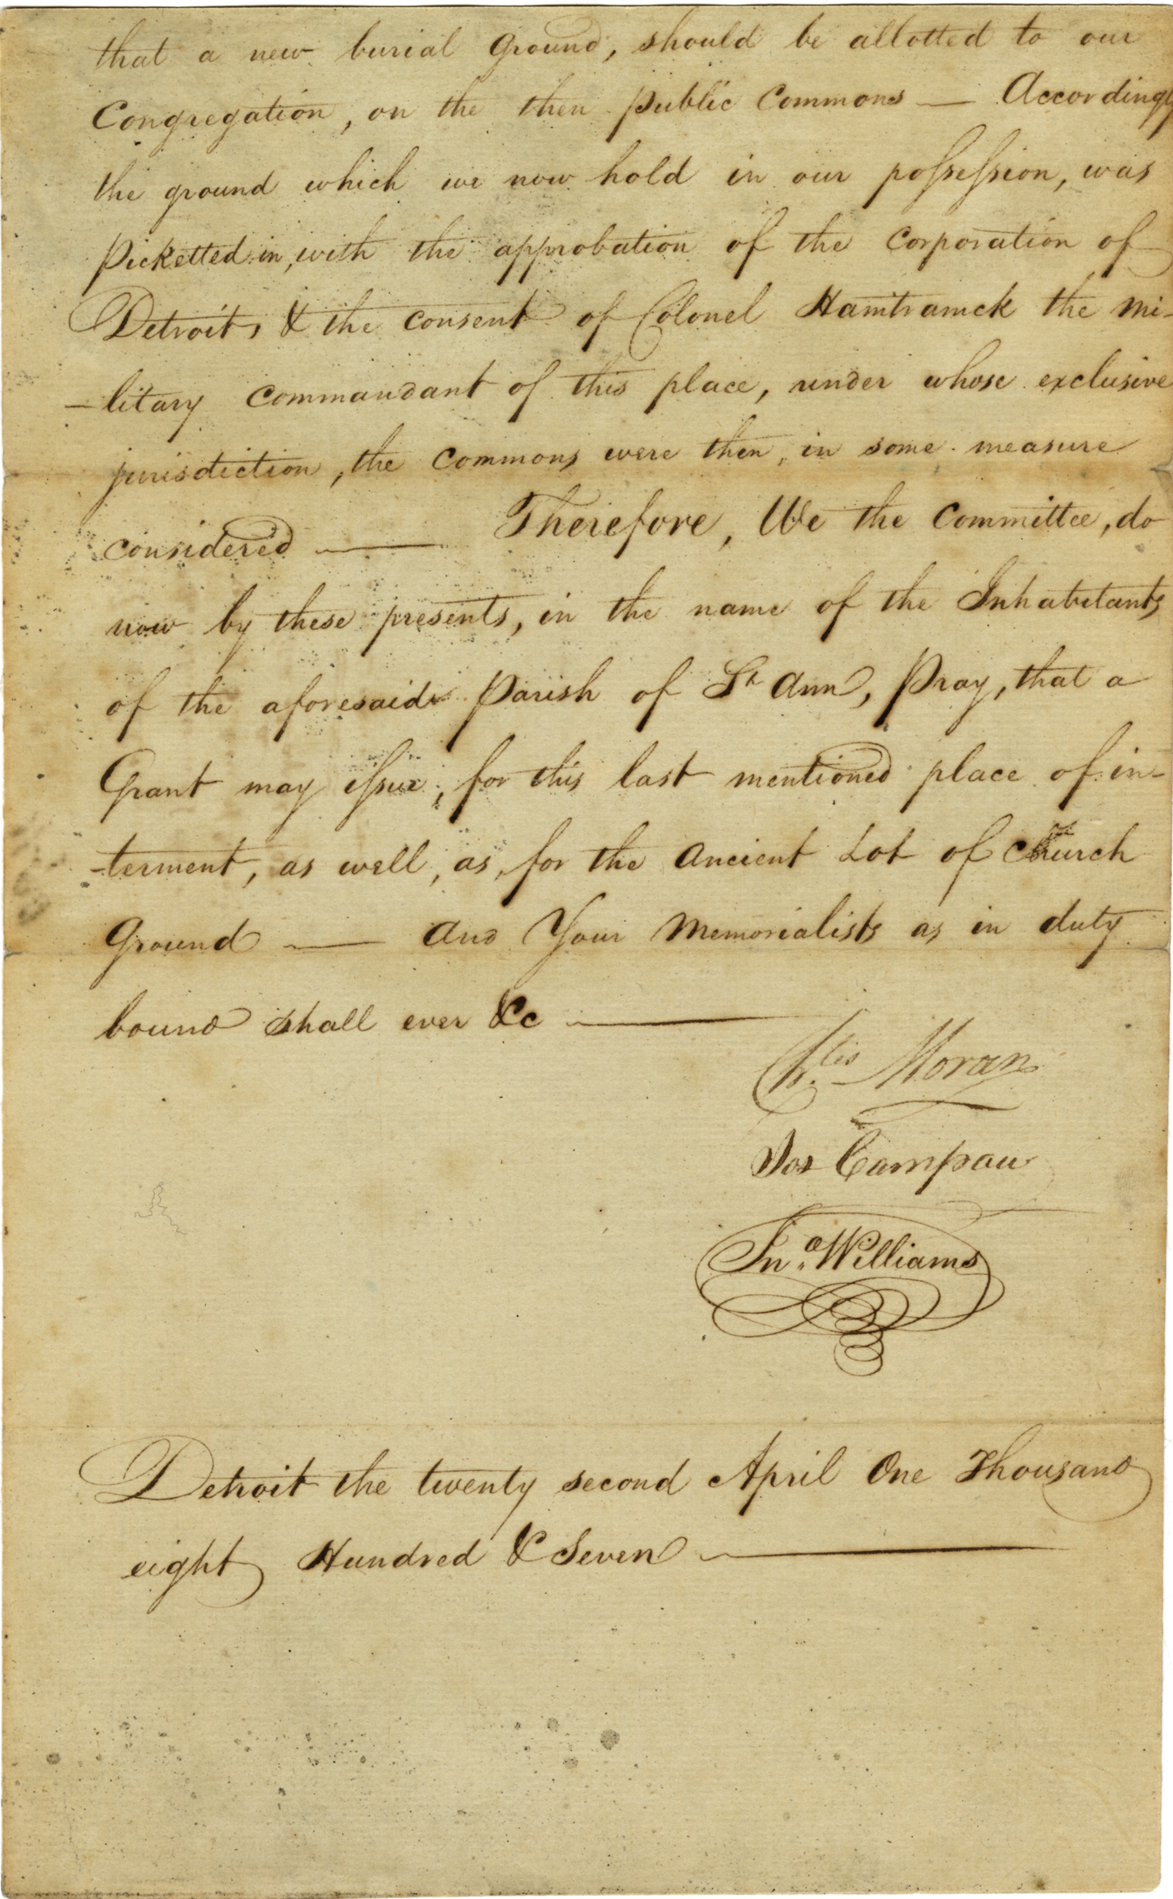 that a new burial Ground, should be allotted to our
Congregation, on the then public Commons — Accordingly
the ground which we now hold in our possession, was
Picketted in, with the approbation of the Corporation of
Detroit, & the consent of Colonel Hamtramck the mi-
-litary Commandant of this place, under whose exclusive
jurisdiction, the Commons were then, in some measure
considered — Therefore, We the Committee, do
now by these presents, in the name of the Inhabetants
of the aforesaid Parish of St Ann, Pray, that a
Grant may issue, for this last mentioned place of in-
-terment, as well, as, for the Ancient Lot of Church
Ground — And Your Memorialists as in duty
bound shall ever &c —
Ch. tis Moran
Jos Campau
Jno. Williams
Detroit the twenty second April One Thousand
eight Hundred & Seven —